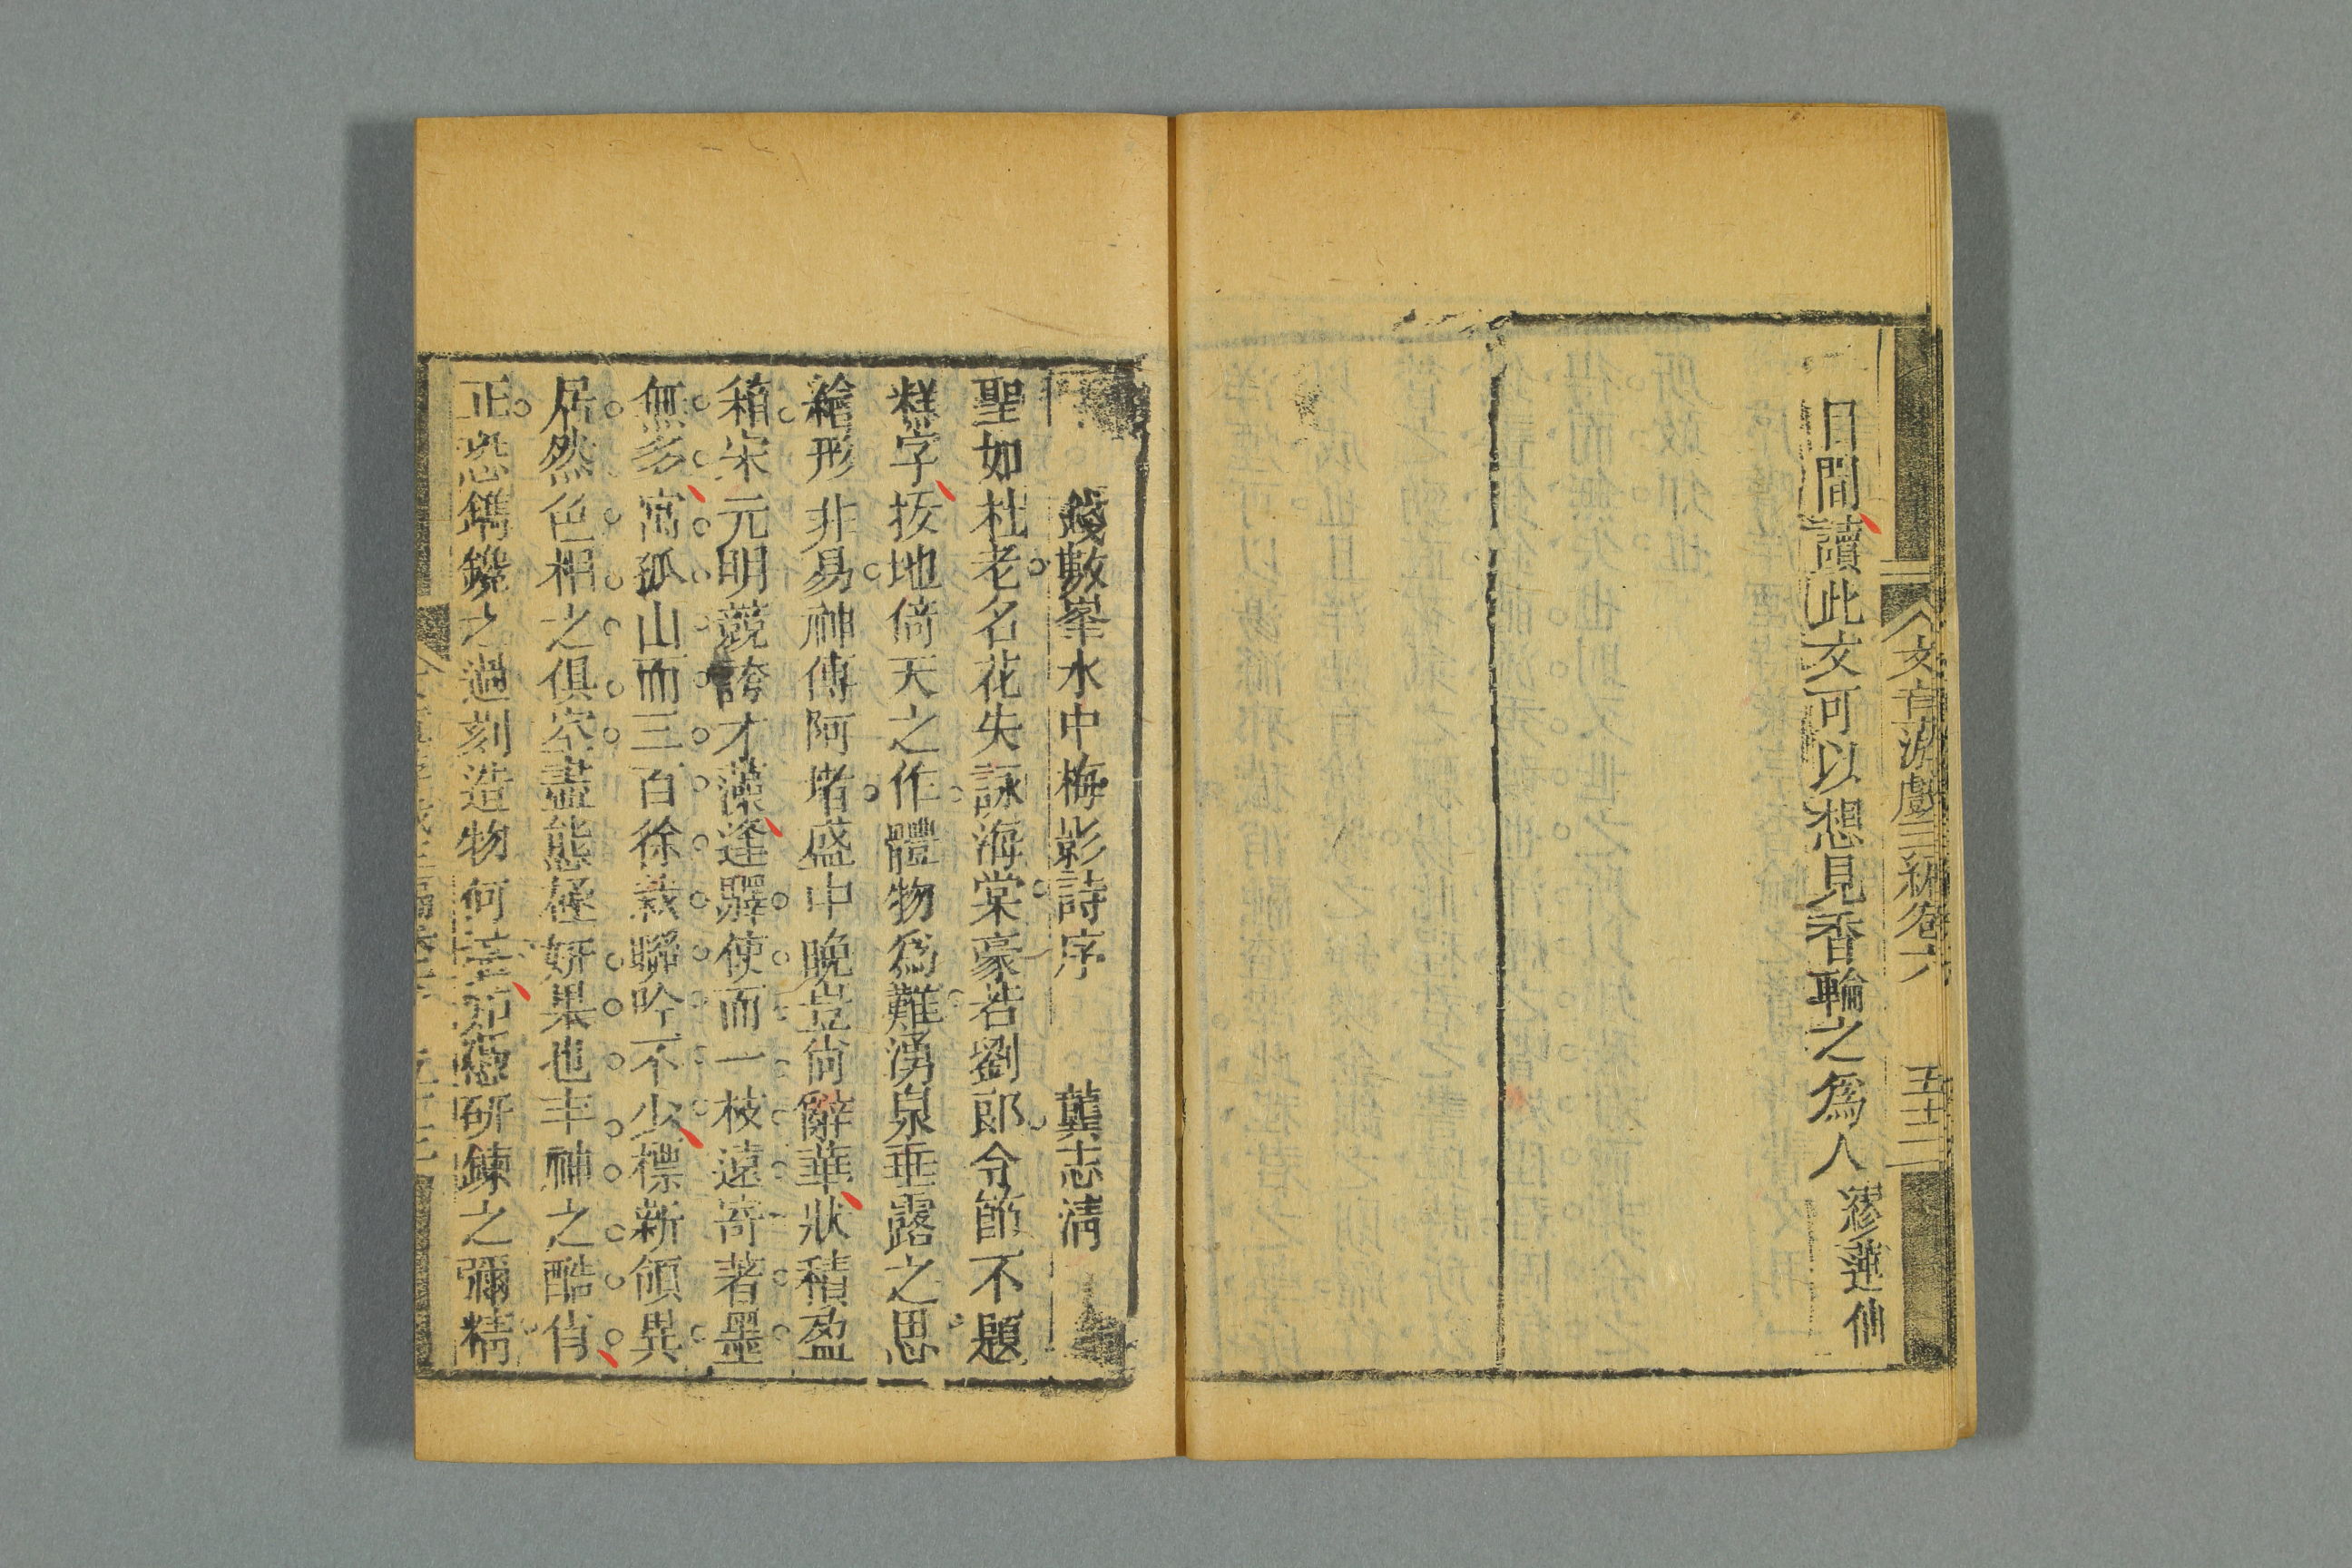 文章游戲三編卷六 五十二
日間讀此文可以想見香輪之爲人 繆蓮仙
錢數峯水中梅影詩序 龔志清
聖如杜老名花失詠海棠豪若劉郎令節不題
糕字拔地倚天之作體物爲難湧泉垂露之思
繪形非易神傳阿堵盛中晚豈尙辭華狀積盈
箱宋元明競誇才藻逢驛使而一枝遠寄著墨
無多富孤山而三百徐裁聯吟不少標新領異
居然色相之俱空盡態極妍果也丰神之酷肖
正恐鐫鑱之過刻造物何研鍊之彌精